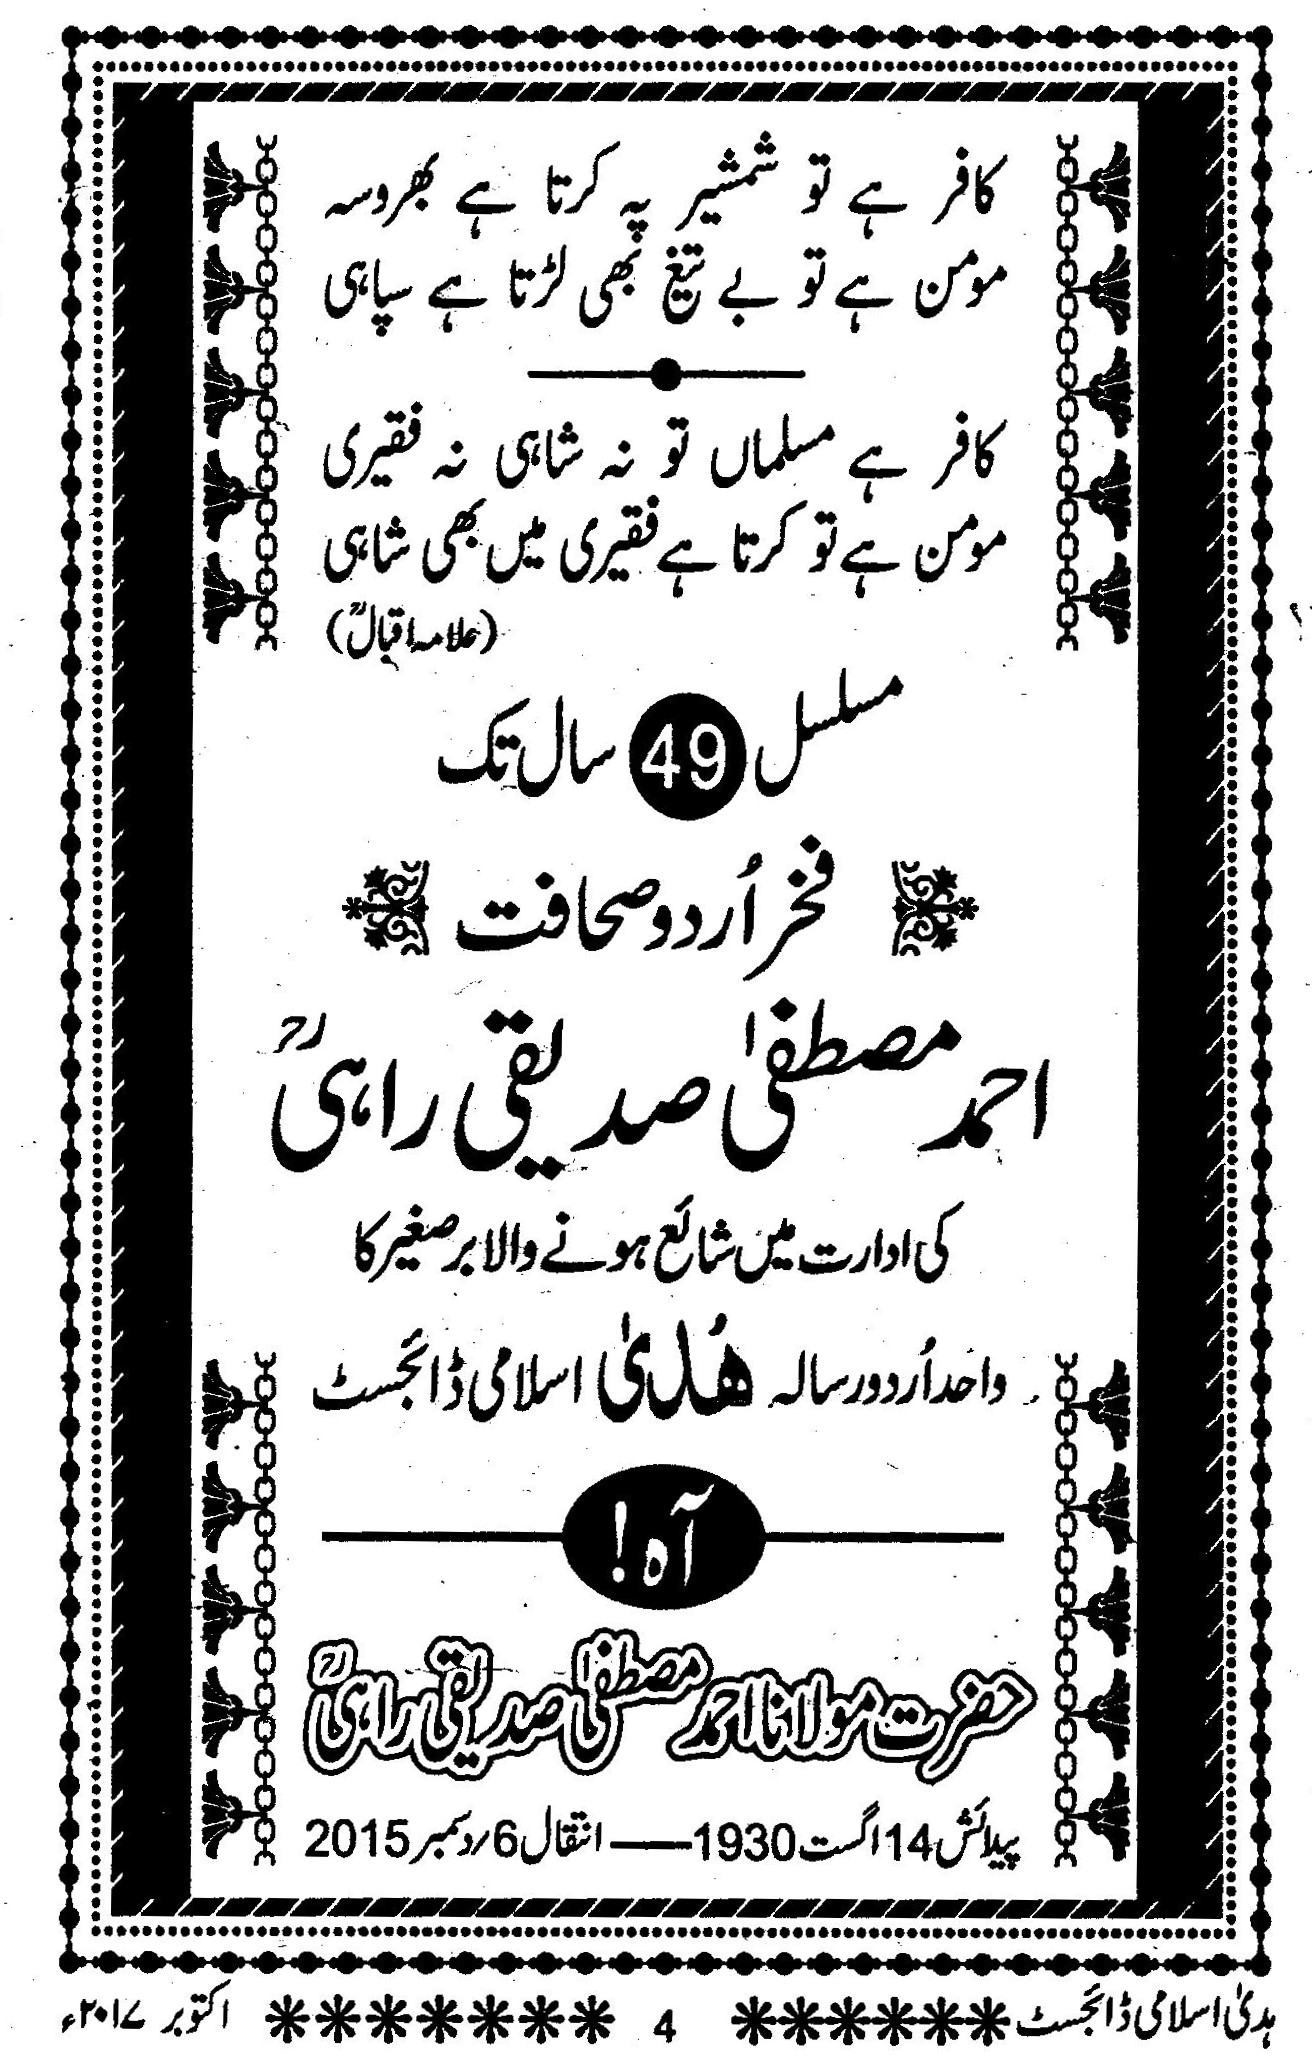 کافر ہے تو شمشیر پہ کرتا ہے بھروسہ
مومن ہے تو بے تیغ بھی لڑتا ہے سپاہی
کافر ہے مسلماں تو نہ شاہی نہ فقیری
مومن ہے تو کرتا ہے فقیری میں بھی شاہی
(علامہ اقبالؒ)
مسلسل 49 سال تک
فخر اُردو صحافت
احمد مصطفیٰ صدیقی راہیؒ
کی ادارت میں شائع ہونے والا برصغیر کا
واحد اُردو رسالہ ھُدیٰ اسلامی ڈائجسٹ
آہ!
حضرت مولانا احمد مصطفیٰ صدیقی راہیؒ
پیدائش 14 اگست 1930 —— انتقال 6/دسمبر 2015
ہدیٰ اسلامی ڈائجسٹ ✻✻✻✻✻✻ 4 ✻✻✻✻✻✻✻ اکتوبر ۲۰۱۷ء